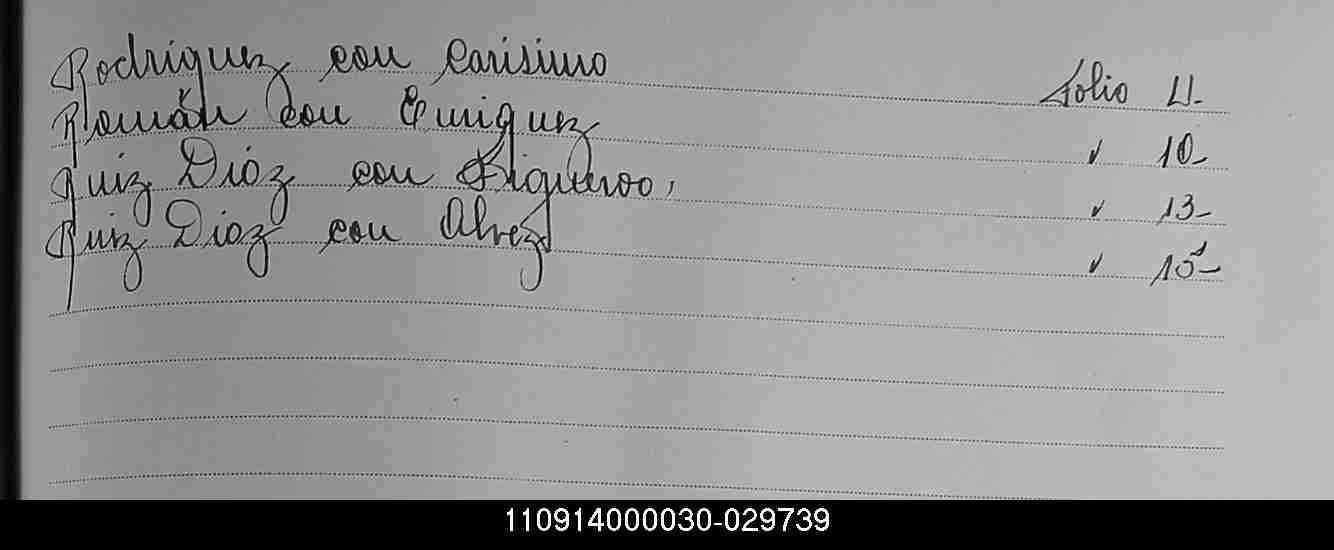 Rodriguez con Carisimo Folio 11-
Román con Enriquez ✓ 10-
Ruiz Diaz con Figueroo, ✓ 13-
Ruiz Diaz con Alvez ✓ 15-
110914000030-029739